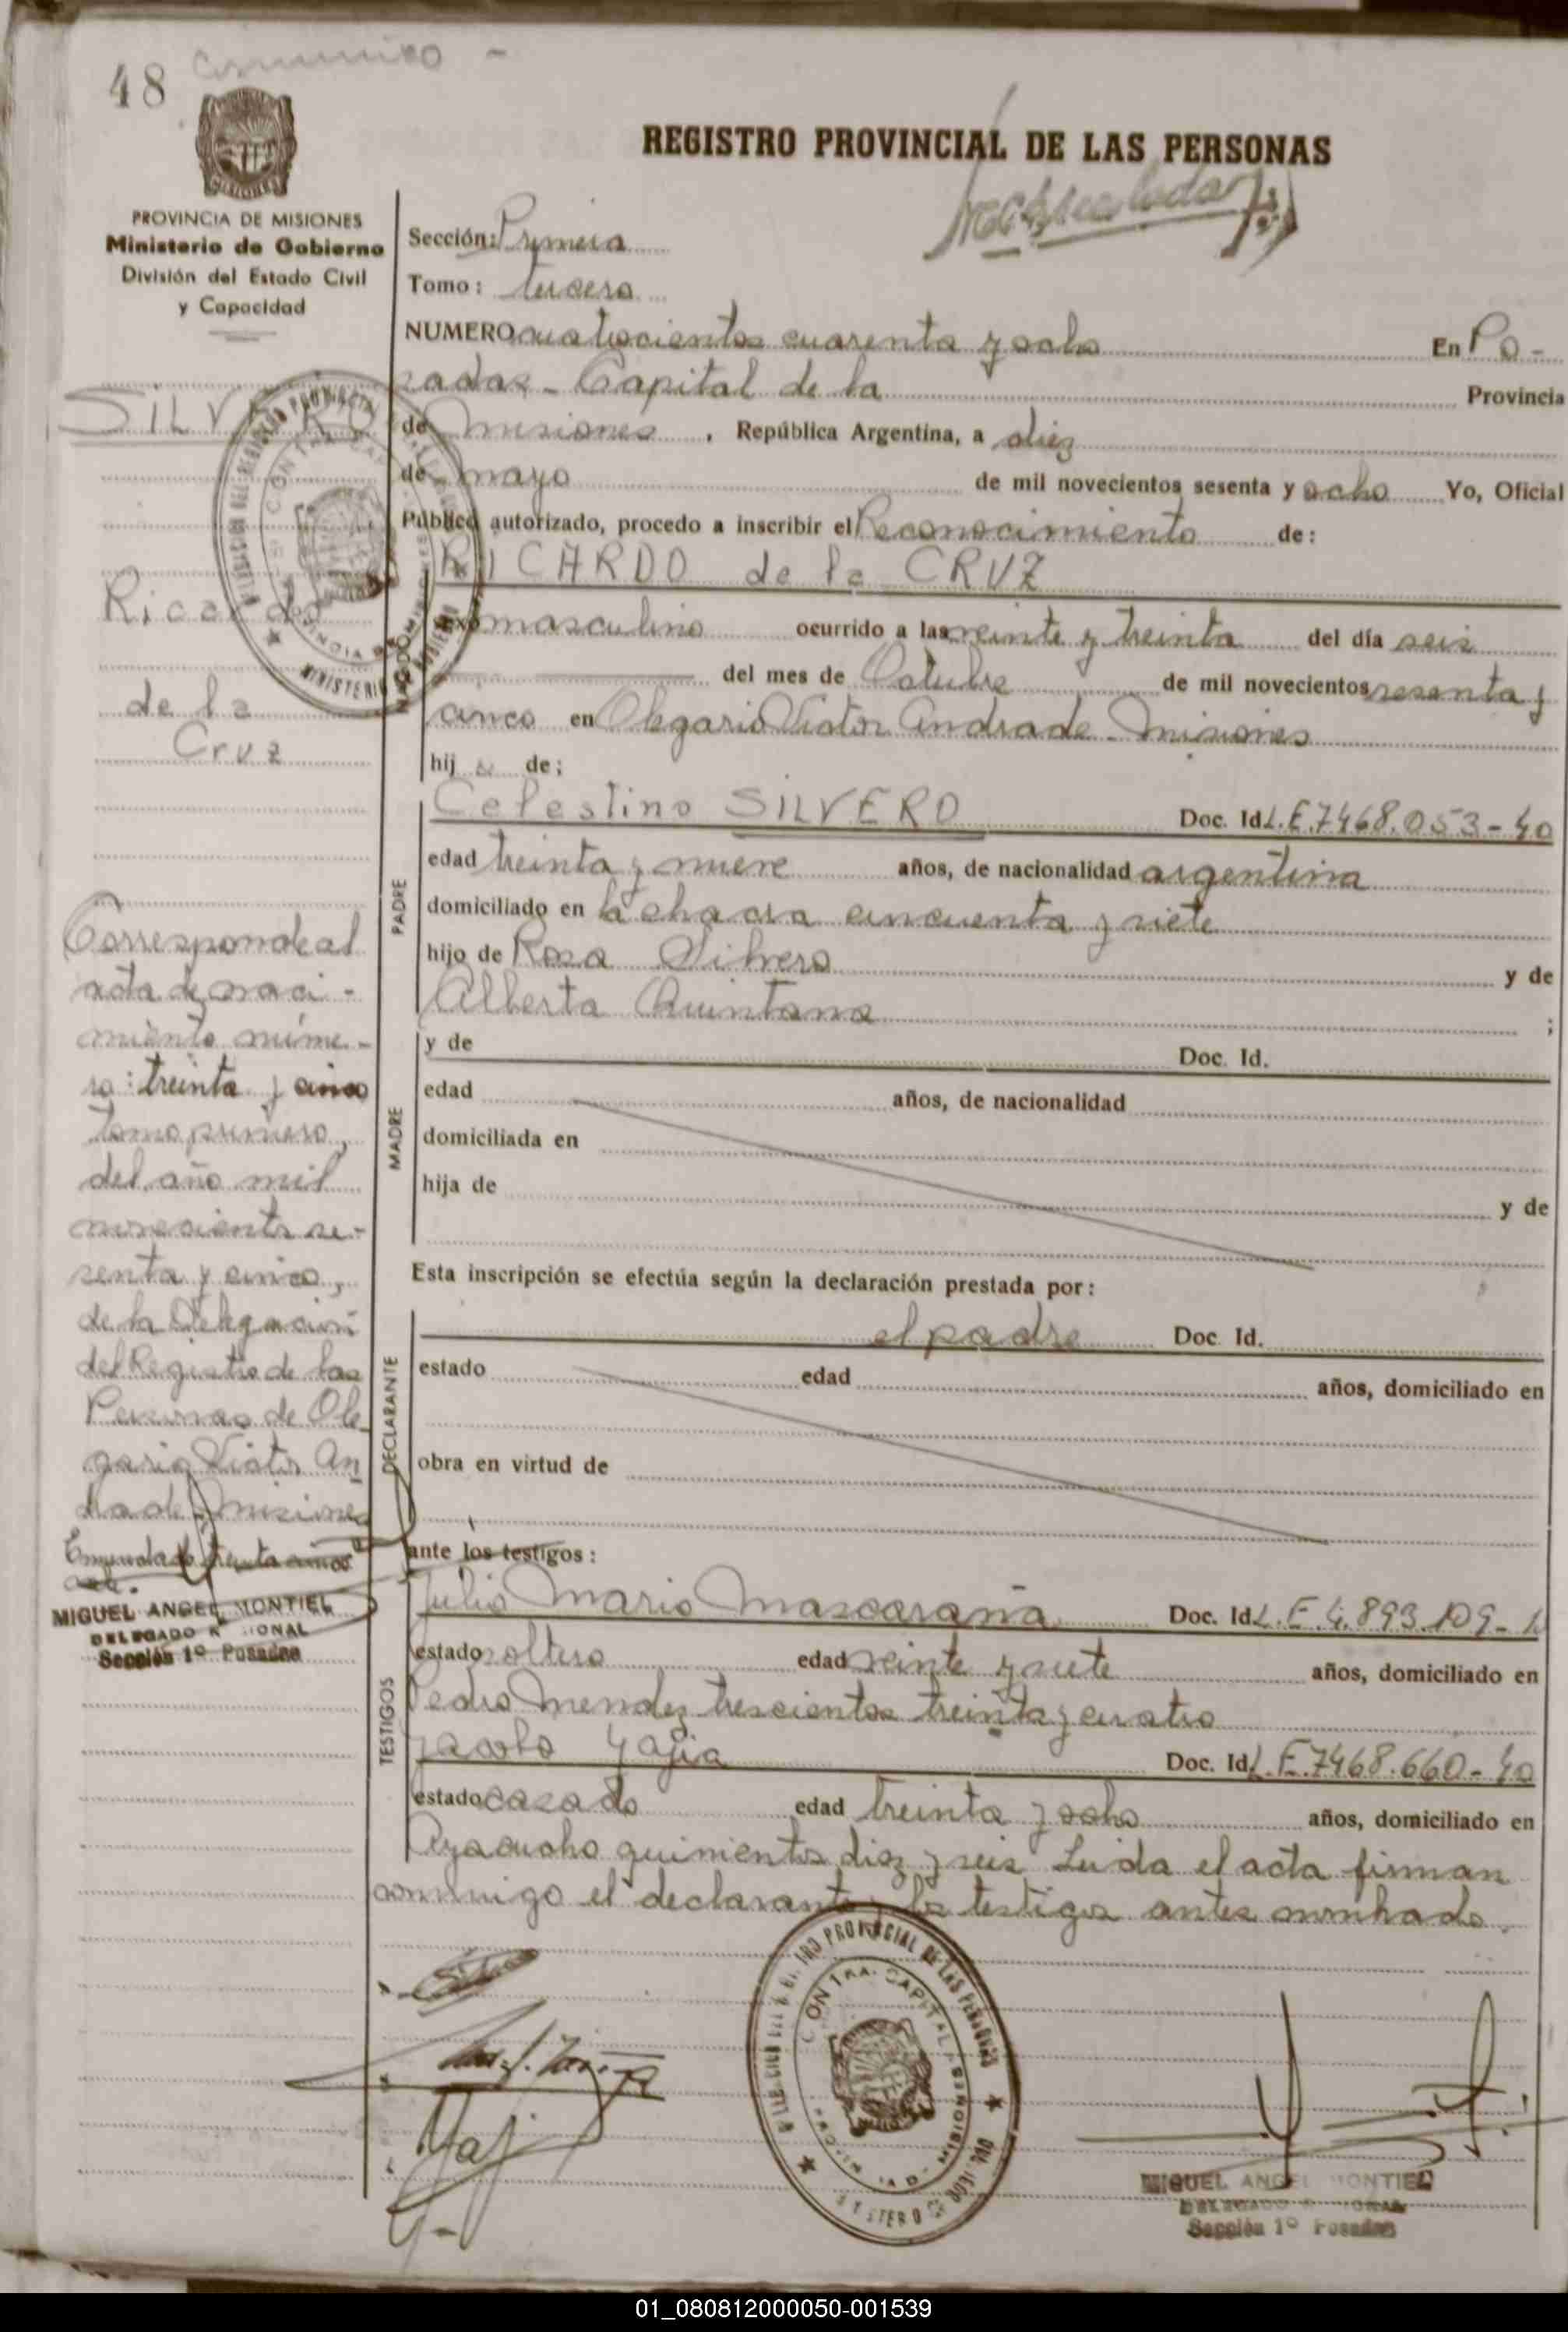 48
REGISTRO PROVINCIAL DE LAS PERSONAS
PROVINCIA DE MISIONES
Ministerio de Gobierno
División del Estado Civil
y Capacidad
SILVERO
Ricardo
de la
Cruz
Corresponde al
acta de naci-
miento núme-
ro: treinta y cinco
tomo primero,
del año mil
novecientos se-
senta y cinco,
de la Delegación
del Registro de las
Personas de Ole-
gario Victor An
drade Misiones
Enmendado treinta cinco
MIGUEL ANGEL MONTIEL
DELEGADO
Sección 1º Posadas
Sección: Primera
Tomo: tercero
NUMERO cuatrocientos cuarenta y ocho En Po-
sadas - Capital de la Provincia
de Misiones, República Argentina, a diez
de mayo de mil novecientos sesenta y ocho Yo, Oficial
Público autorizado, procedo a inscribir el Reconocimiento de:
RICARDO de la CRUZ
sexo masculino ocurrido a las veinte y treinta del día seis
del mes de Octubre de mil novecientos sesenta y
cinco en Olegario Victor Andrade - Misiones
hijo de;
PADRE
Celestino SILVERO Doc. Id. L.E.7468.053-40
edad treinta y nueve años, de nacionalidad argentina
domiciliado en la chacra cincuenta y siete
hijo de Rosa Silvero y de
Alberta Quintana ;
MADRE
y de Doc. Id.
edad años, de nacionalidad
domiciliada en
hija de y de
Esta inscripción se efectúa según la declaración prestada por:
DECLARANTE
el padre Doc. Id.
estado edad años, domiciliado en
obra en virtud de
ante los testigos:
TESTIGOS
Julio Mario Mascaraña Doc. Id. L.E.4.893.109-
estado soltero edad veinte y siete años, domiciliado en
Pedro Mendez trescientos treinta y cuatro
Jacobo Doc. Id. L.E.7468.660-40
estado casado edad treinta y ocho años, domiciliado en
Ayacucho quinientos diez y seis Leida el acta firman
conmigo el declarante y los testigos antes nombrado.
CONTRA. CAPITAL
MIGUEL ANGEL MONTIEL
DELEGADO
Sección 1º Posadas
01_080812000050-001539